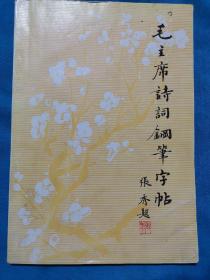 毛主席詩詞鋼筆字帖
張秀超